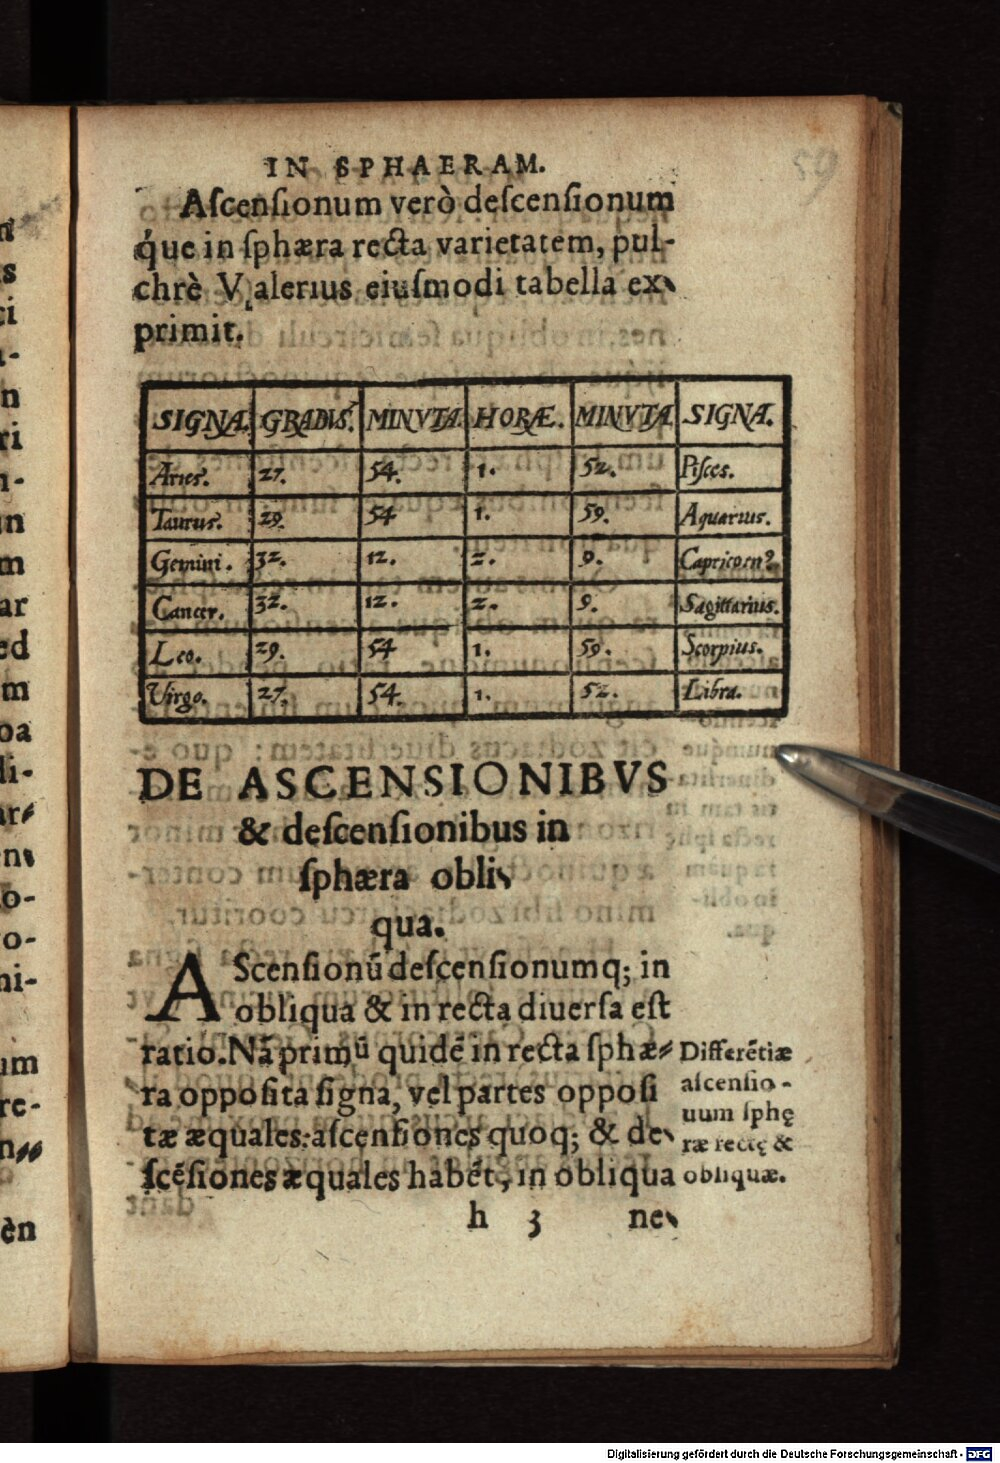 59
IN SPHAERAM.
Aſcenſionum verò deſcenſionum
q́ue in ſphæra recta varietatem, pul-
chrè Valerius eiuſmodi tabella ex-
primit.
SIGNA. GRADVS. MINVTA. HORÆ. MINVTA. SIGNA.
Aries. 27. 54. 1. 52. Piſces.
Taurus. 29. 54 1. 59. Aquarius.
Gemini. 32. 12. 2. 9. Capricorn⁹.
Cancer. 32. 12. 2. 9. Sagittarius.
Leo. 29. 54 1. 59. Scorpius.
Virgo. 27. 54. 1. 52. Libra.
DE ASCENSIONIBVS
& deſcenſionibus in
ſphæra obli-
qua.
AScenſionū deſcenſionumq; in
obliqua & in recta diuerſa eſt
ratio. Nā primū quidē in recta ſphæ-
ra oppoſita ſigna, vel partes oppoſi
tæ æquales: aſcenſiones quoq; & de-
ſcēſiones æquales habēt, in obliqua
Differētiæ
aſcenſio-
uum ſphę
ræ rectę &
obliquæ.
h 3 ne-
Digitalisierung gefördert durch die Deutsche Forschungsgemeinschaft - DFG